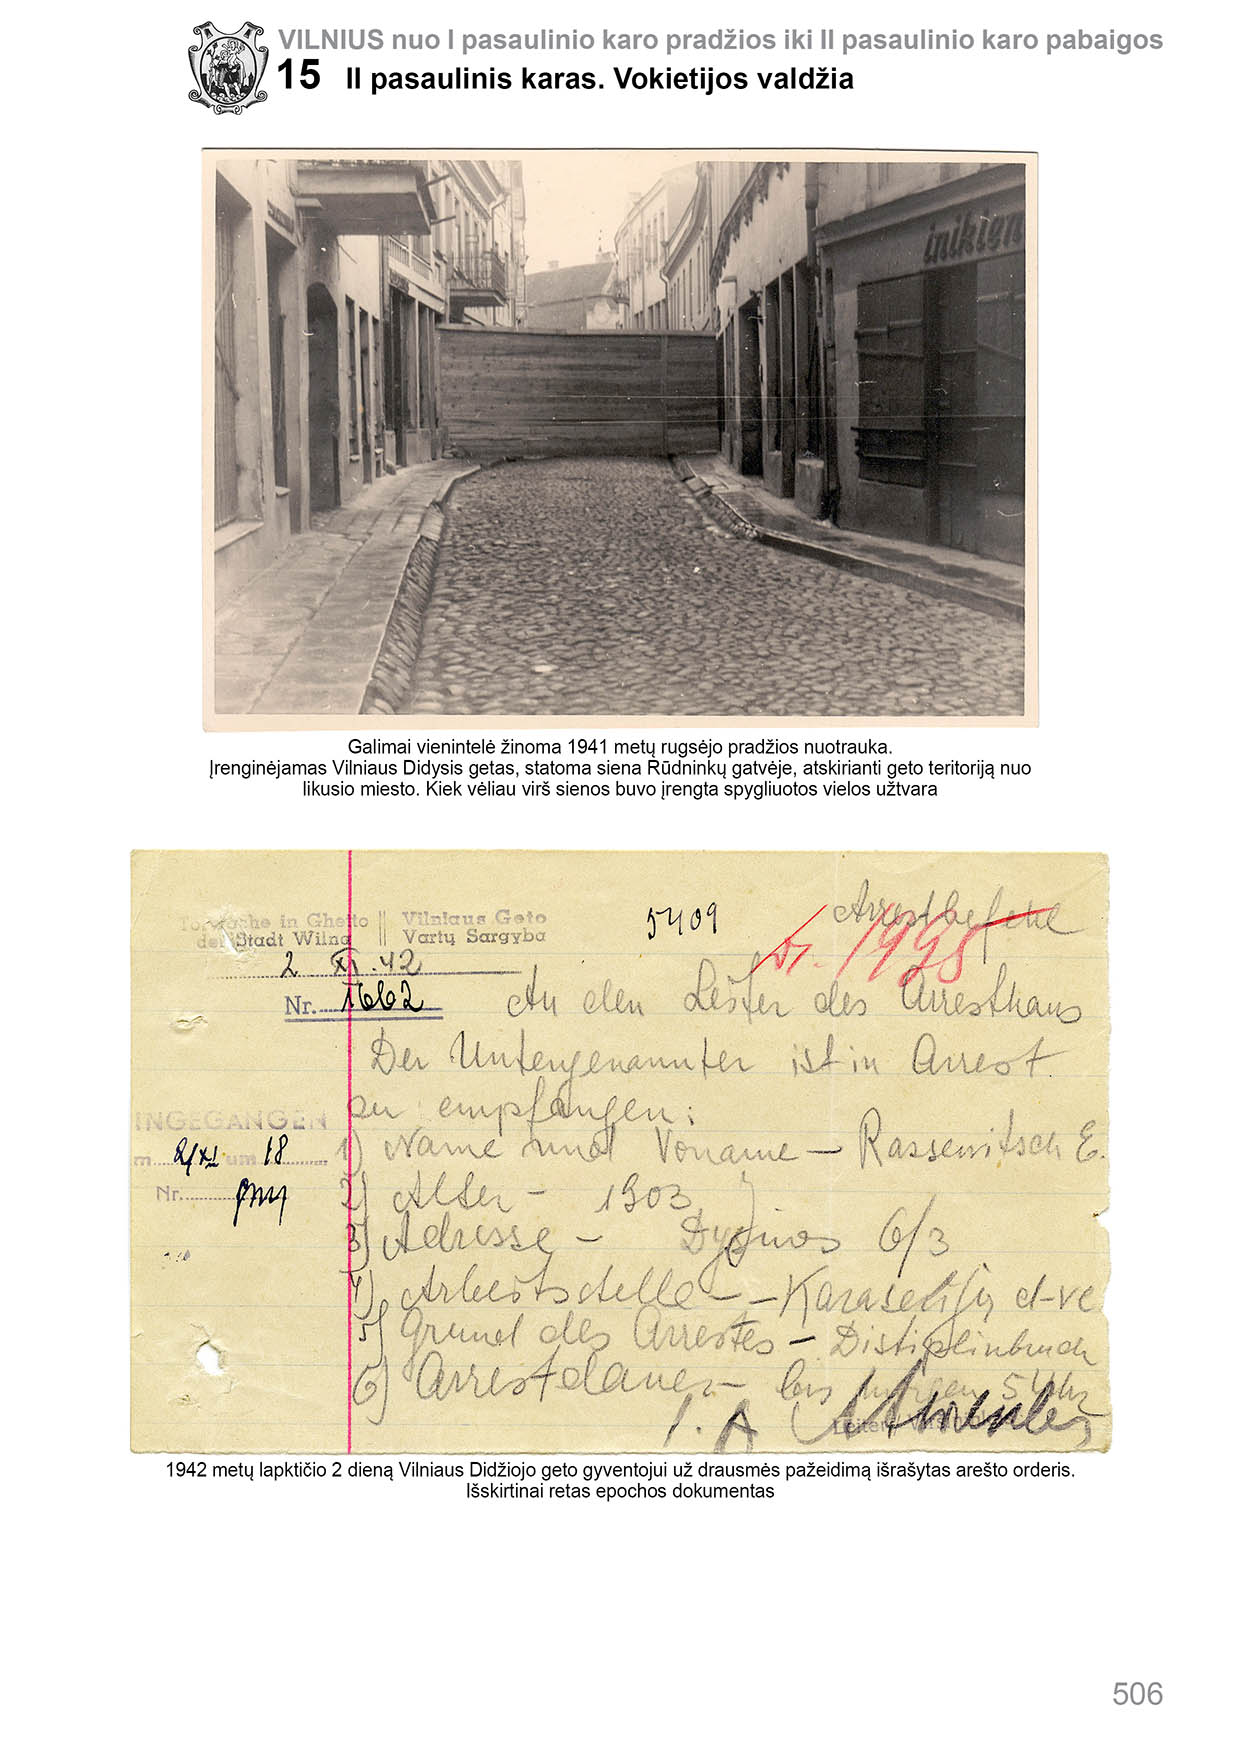 VILNIUS nuo I pasaulinio karo pradžios iki II pasaulinio karo pabaigos
15 II pasaulinis karas. Vokietijos valdžia
inikien
Galimai vienintelė žinoma 1941 metų rugsėjo pradžios nuotrauka.
Įrenginėjamas Vilniaus Didysis getas, statoma siena Rūdninkų gatvėje, atskirianti geto teritoriją nuo
likusio miesto. Kiek vėliau virš sienos buvo įrengta spygliuotos vielos užtvara
Torwache in Ghetto
der Stadt Wilna
Vilniaus Geto
Vartų Sargyba
2 XI. 42
Nr. 1662
5409
Arrestbefehl
1998
An den Leiter des Arresthaus
Der Untengenannter ist in Arrest
zu empfangen:
INGEGANGEN
m 2/XI um 18
Nr.
1) Name und Voname – Rassewitsch E.
2) Alter – 1903
3) Adresse – Dysnos 6/3
4) Arbeitsstelle –
5) Grund des Arrestes – Distiplinbruch
6) Arrestdauer – bis morgen 5 Uhr
I. A
1942 metų lapktičio 2 dieną Vilniaus Didžiojo geto gyventojui už drausmės pažeidimą išrašytas arešto orderis.
Išskirtinai retas epochos dokumentas
506